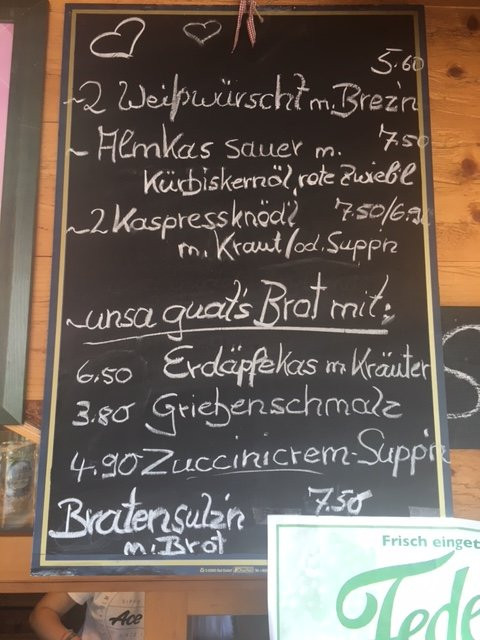 5.60
~2 Weißwürscht m. Brez'n
~ Almkas sauer m. 7.50
Kürbiskernöl, rote Zwiebl
~2 Kaspressknödl 7.50/6.90
m. Kraut/od. Supp'n
~unsa guat's Brot mit:
6.50 Erdäpfekas m. Kräuter
3.80 Grießenschmalz
4.90 Zuccinicrem-Supp'n
Bratensulz'n 7.50
m. Brot
Frisch einget
Tede
Ace
S